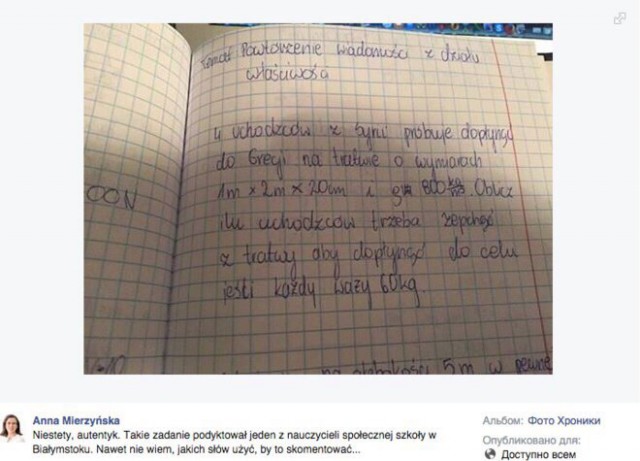 Temat Powtórzenie wiadomości z działu
właściwości
4 uchodźców z Syrii próbuje dopłynąć
do Grecji na tratwie o wymiarach
1m x 2m x 20cm i 800 kg/m³. Oblicz
ilu uchodźców trzeba zepchnąć
z tratwy aby dopłynąć do celu
jeśli każdy waży 60kg.
OON
na głębokości 5m w pewne
Anna Mierzyńska
Niestety, autentyk. Takie zadanie podyktował jeden z nauczycieli społecznej szkoły w
Białymstoku. Nawet nie wiem, jakich słów użyć, by to skomentować...
Альбом: Фото Хроники
Опубликовано для:
Доступно всем